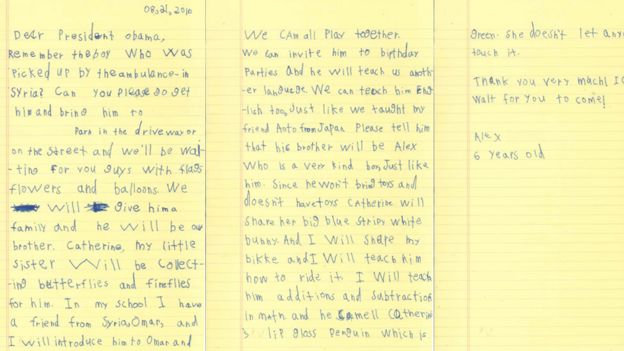 08,21,2010
Dear President obama,
Remember the boy who was
picked up by the ambulance in
Syria? Can you please go get
him and bring him to
Park in the driveway or
on the street and we'll be wai-
ting for you guys with flags
flowers and balloons. We
will give him a
family and he will be our
brother. Catherine, my little
sister will be collect-
ing butterflies and fireflies
for him. In my school I have
a friend from Syria, Omar, and
I will introduce him to Omar and
We can all play together.
We can invite him to birthday
parties and he will teach us anoth-
er language. We can teach him Eng-
lish too, Just like we taught my
friend Aoto from Japan Please tell him
that his brother will be Alex
who is a very kind boy, Just like
him. Since he won't bring toys and
doesn't have toys Catherine will
share her big blue stripy white
bunny. And I will share my
bikke and I will teach him
how to ride it I will teach
him additions and subtraction
in math and he smell Catherine
lip gloss penguin which is
green. she doesn't let any
touch it.
Thank you very much! I
wait for you to come!
Alex
6 years old